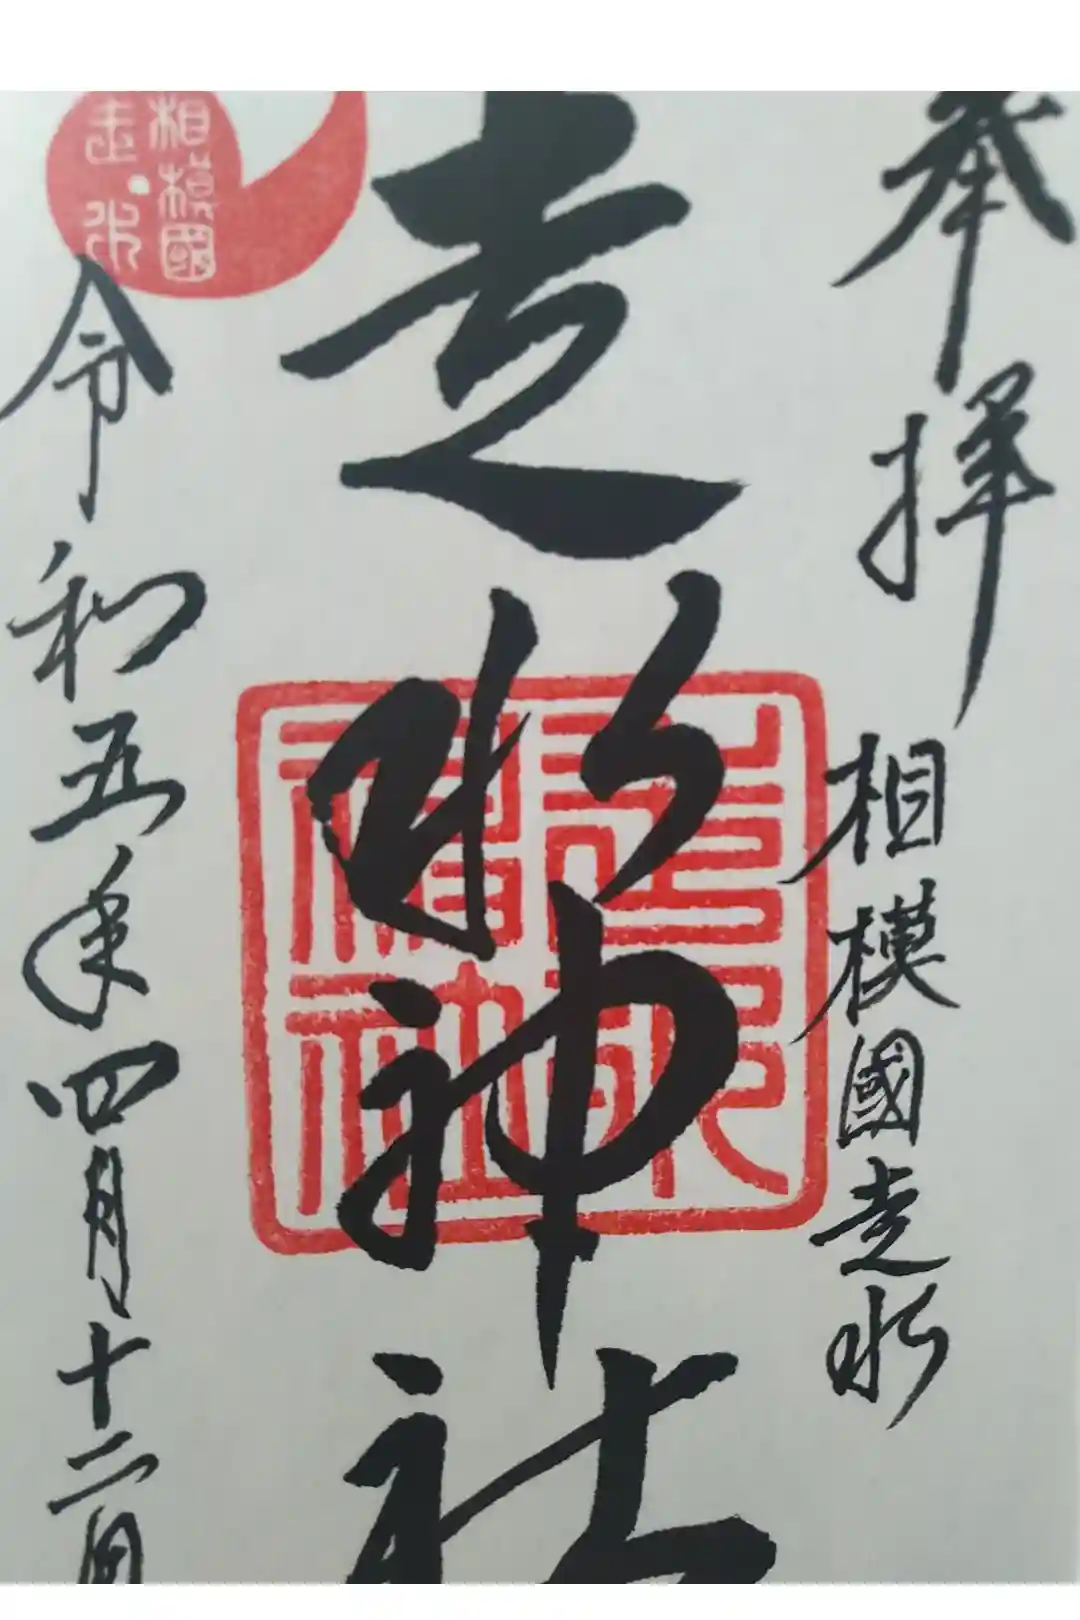 奉拝
相模國走水
走水神社
相模國
走水
走水
神社
令和五年四月十二日